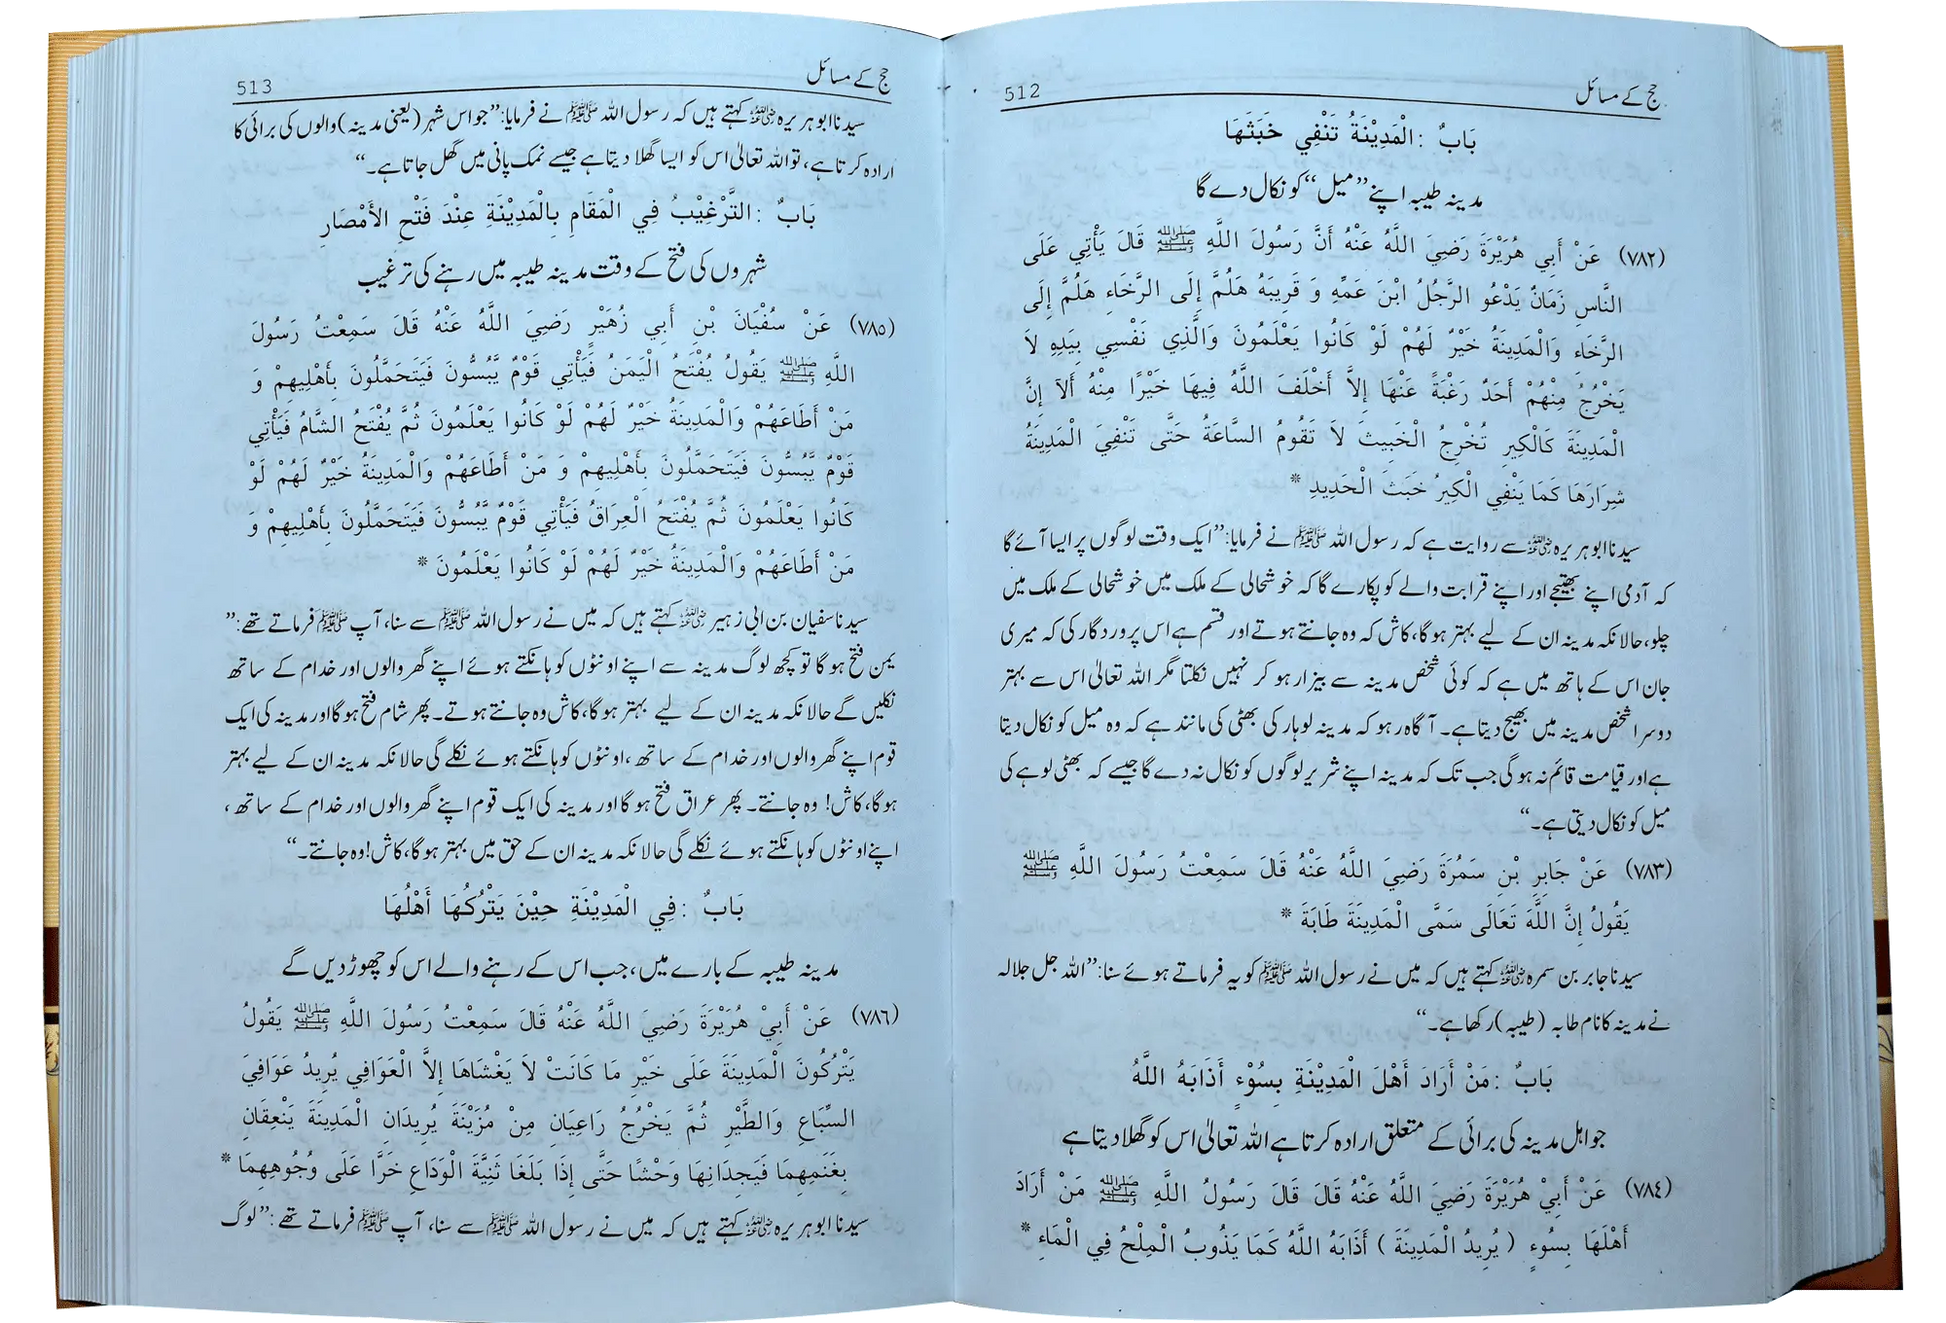 حج کے مسائل
512
بَابٌ :الْمَدِيْنَةُ تَنْفِي خَبَثَهَا
مدینہ طیبہ اپنے ”میل“ کو نکال دے گا
(٧٨٢) عَنْ أَبِي هُرَيْرَةَ رَضِيَ اللَّهُ عَنْهُ أَنَّ رَسُولَ اللَّهِ ﷺ قَالَ يَأْتِي عَلَى
النَّاسِ زَمَانٌ يَدْعُو الرَّجُلُ ابْنَ عَمِّهِ وَ قَرِيبَهُ هَلُمَّ إِلَى الرَّخَاءِ هَلُمَّ إِلَى
الرَّخَاءِ وَالْمَدِينَةُ خَيْرٌ لَهُمْ لَوْ كَانُوا يَعْلَمُونَ وَالَّذِي نَفْسِي بِيَدِهِ لاَ
يَخْرُجُ مِنْهُمْ أَحَدٌ رَغْبَةً عَنْهَا إِلاَّ أَخْلَفَ اللَّهُ فِيهَا خَيْرًا مِنْهُ أَلاَ إِنَّ
الْمَدِينَةَ كَالْكِيرِ تُخْرِجُ الْخَبِيثَ لاَ تَقُومُ السَّاعَةُ حَتَّى تَنْفِيَ الْمَدِينَةُ
شِرَارَهَا كَمَا يَنْفِي الْكِيرُ خَبَثَ الْحَدِيدِ *
سیدنا ابو ہریرہ ؓ سے روایت ہے کہ رسول اللہ ﷺ نے فرمایا: ”ایک وقت لوگوں پر ایسا آئے گا
کہ آدمی اپنے بھتیجے اور اپنے قرابت والے کو پکارے گا کہ خوشحالی کے ملک میں خوشحالی کے ملک میں
چلو، حالانکہ مدینہ ان کے لیے بہتر ہو گا، کاش کہ وہ جانتے ہوتے اور قسم ہے اس پروردگار کی کہ میری
جان اس کے ہاتھ میں ہے کہ کوئی شخص مدینہ سے بیزار ہو کر نہیں نکلتا مگر اللہ تعالیٰ اس سے بہتر
دوسرا شخص مدینہ میں بھیج دیتا ہے۔ آگاہ رہو کہ مدینہ لوہار کی بھٹی کی مانند ہے کہ وہ میل کو نکال دیتا
ہے اور قیامت قائم نہ ہو گی جب تک کہ مدینہ اپنے شریر لوگوں کو نکال نہ دے گا جیسے کہ بھٹی لوہے کی
میل کو نکال دیتی ہے۔“
(٧٨٣) عَنْ جَابِرِ بْنِ سَمُرَةَ رَضِيَ اللَّهُ عَنْهُ قَالَ سَمِعْتُ رَسُولَ اللَّهِ ﷺ
يَقُولُ إِنَّ اللَّهَ تَعَالَى سَمَّى الْمَدِينَةَ طَابَةَ *
سیدنا جابر بن سمرہ ؓ کہتے ہیں کہ میں نے رسول اللہ ﷺ کو یہ فرماتے ہوئے سنا: ”اللہ جل جلالہ
نے مدینہ کا نام طابہ (طیبہ) رکھا ہے۔“
بَابٌ :مَنْ أَرَادَ أَهْلَ الْمَدِيْنَةِ بِسُوْءٍ أَذَابَهُ اللَّهُ
جو اہل مدینہ کی برائی کے متعلق ارادہ کرتا ہے اللہ تعالیٰ اس کو گھلا دیتا ہے
(٧٨٤) عَنْ أَبِيْ هُرَيْرَةَ رَضِيَ اللَّهُ عَنْهُ قَالَ قَالَ رَسُولُ اللَّهِ ﷺ مَنْ أَرَادَ
أَهْلَهَا بِسُوءٍ ( يُرِيدُ الْمَدِينَةَ ) أَذَابَهُ اللَّهُ كَمَا يَذُوبُ الْمِلْحُ فِي الْمَاءِ *
حج کے مسائل
513
سیدنا ابو ہریرہ ؓ کہتے ہیں کہ رسول اللہ ﷺ نے فرمایا: ”جو اس شہر (یعنی مدینہ) والوں کی برائی کا
ارادہ کرتا ہے، تو اللہ تعالیٰ اس کو ایسا گھلا دیتا ہے جیسے نمک پانی میں گھل جاتا ہے۔“
بَابٌ :التَّرْغِيْبُ فِي الْمَقَامِ بِالْمَدِيْنَةِ عِنْدَ فَتْحِ الأَمْصَارِ
شہروں کی فتح کے وقت مدینہ طیبہ میں رہنے کی ترغیب
(٧٨٥) عَنْ سُفْيَانَ بْنِ أَبِي زُهَيْرٍ رَضِيَ اللَّهُ عَنْهُ قَالَ سَمِعْتُ رَسُولَ
اللَّهِ ﷺ يَقُولُ يُفْتَحُ الْيَمَنُ فَيَأْتِي قَوْمٌ يَّبُسُّونَ فَيَتَحَمَّلُونَ بِأَهْلِيهِمْ وَ
مَنْ أَطَاعَهُمْ وَالْمَدِينَةُ خَيْرٌ لَهُمْ لَوْ كَانُوا يَعْلَمُونَ ثُمَّ يُفْتَحُ الشَّامُ فَيَأْتِي
قَوْمٌ يَّبُسُّونَ فَيَتَحَمَّلُونَ بِأَهْلِيهِمْ وَ مَنْ أَطَاعَهُمْ وَالْمَدِينَةُ خَيْرٌ لَهُمْ لَوْ
كَانُوا يَعْلَمُونَ ثُمَّ يُفْتَحُ الْعِرَاقُ فَيَأْتِي قَوْمٌ يَّبُسُّونَ فَيَتَحَمَّلُونَ بِأَهْلِيهِمْ وَ
مَنْ أَطَاعَهُمْ وَالْمَدِينَةُ خَيْرٌ لَهُمْ لَوْ كَانُوا يَعْلَمُونَ *
سیدنا سفیان بن ابی زہیر ؓ کہتے ہیں کہ میں نے رسول اللہ ﷺ سے سنا، آپ ﷺ فرماتے تھے: ”
یمن فتح ہو گا تو کچھ لوگ مدینہ سے اپنے اونٹوں کو ہانکتے ہوئے اپنے گھر والوں اور خدام کے ساتھ
نکلیں گے حالانکہ مدینہ ان کے لیے بہتر ہو گا، کاش وہ جانتے ہوتے۔ پھر شام فتح ہو گا اور مدینہ کی ایک
قوم اپنے گھر والوں اور خدام کے ساتھ، اونٹوں کو ہانکتے ہوئے نکلے گی حالانکہ مدینہ ان کے لیے بہتر
ہو گا، کاش! وہ جانتے۔ پھر عراق فتح ہو گا اور مدینہ کی ایک قوم اپنے گھر والوں اور خدام کے ساتھ،
اپنے اونٹوں کو ہانکتے ہوئے نکلے گی حالانکہ مدینہ ان کے حق میں بہتر ہو گا، کاش! وہ جانتے۔“
بَابٌ :فِي الْمَدِيْنَةِ حِيْنَ يَتْرُكُهَا أَهْلُهَا
مدینہ طیبہ کے بارے میں، جب اس کے رہنے والے اس کو چھوڑ دیں گے
(٧٨٦) عَنْ أَبِيْ هُرَيْرَةَ رَضِيَ اللَّهُ عَنْهُ قَالَ سَمِعْتُ رَسُولَ اللَّهِ ﷺ يَقُولُ
يَتْرُكُونَ الْمَدِينَةَ عَلَى خَيْرِ مَا كَانَتْ لاَ يَغْشَاهَا إِلاَّ الْعَوَافِي يُرِيدُ عَوَافِيَ
السِّبَاعِ وَالطَّيْرِ ثُمَّ يَخْرُجُ رَاعِيَانِ مِنْ مُزَيْنَةَ يُرِيدَانِ الْمَدِينَةَ يَنْعِقَانِ
بِغَنَمِهِمَا فَيَجِدَانِهَا وَحْشًا حَتَّى إِذَا بَلَغَا ثَنِيَّةَ الْوَدَاعِ خَرَّا عَلَى وُجُوهِهِمَا *
سیدنا ابو ہریرہ ؓ کہتے ہیں کہ میں نے رسول اللہ ﷺ سے سنا، آپ ﷺ فرماتے تھے: ”لوگ